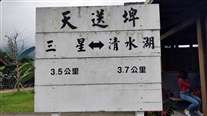 天送埤
三星⬌清水湖
3.5公里 3.7公里